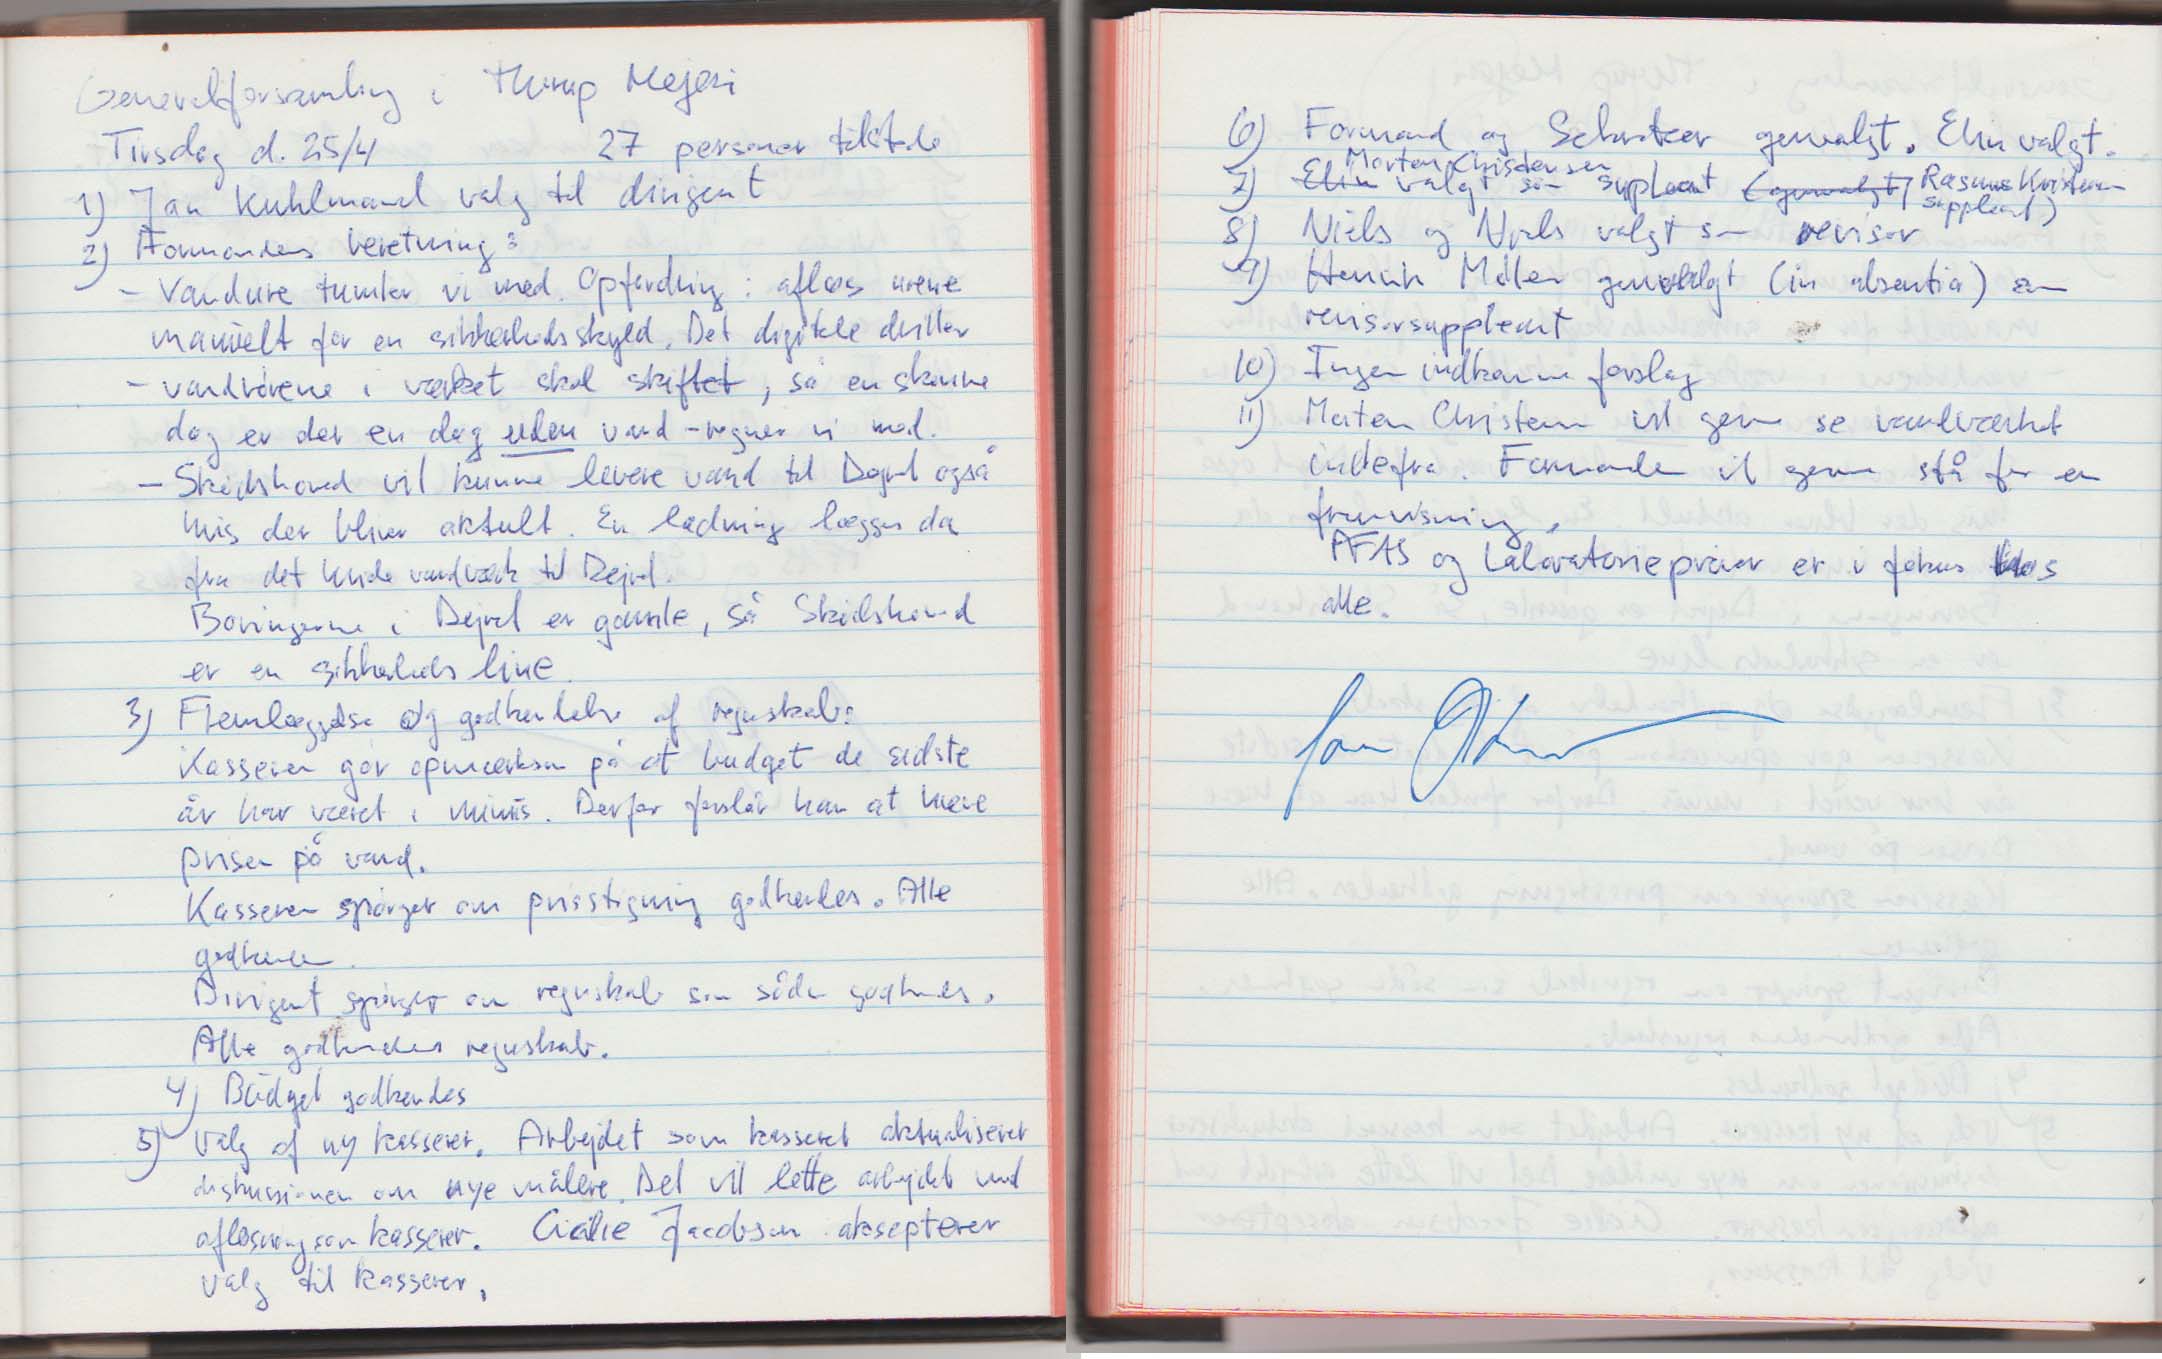 Generalforsamling i Thorup Mejeri
Tirsdag d. 25/4 27 personer tilstede
1) Jan Kuhlmand valg til dirigent
2) Formandens beretning:
- Vandure tumler vi med. Opfordring: aflæs urene
manuelt for en sikkerhedsskyld. Det digitale driller
- vandrørene i værket skal skiftet, så en skønne
dag er der en dag uden vand - regner vi med.
- Skidshoved vil kunne levere vand til Dejret også
hvis der bliver aktuelt. En ledning lægges da
fra det hvide vandværk til Dejret.
Boringerne i Dejret er gamle, så Skidshoved
er en sikkerheds line.
3) Fremlæggelse og godkendelse af regnskab:
Kasseren gør opmærksom på at budget de sidste
år har været i minus. Derfor foreslår han at hæve
prisen på vand.
Kasseren spørger om prisstigning godkendes. Alle
godkender.
Dirigent spørger om regnskab som sådan godkendes.
Alle godkender regnskab.
4) Budget godkendes
5) Valg af ny kasserer. Arbejdet som kasserer aktualiserer
diskussionen om nye målere. Det vil lette arbejdet ved
aflæsning som kasserer. Cicilie Jacobsen aksepterer
valg til kasserer.
6) Formand og Sekretær genvalgt. Elin valgt.
Morten Christensen
7) Elin valgt som suppleant (genvalgt) Rasmus Kristensen
suppleant)
8) Niels og Niels valgt som revisor
9) Henrik Möller genvalgt (in absentia) som
revisorsuppleant
10) Ingen indkomne forslag
11) Morten Christensen vil gerne se vandværket
indefra. Formanden vil gerne stå for en
fremvisning.
PFAS og Laboratorieprøver er i fokus hos
alle.